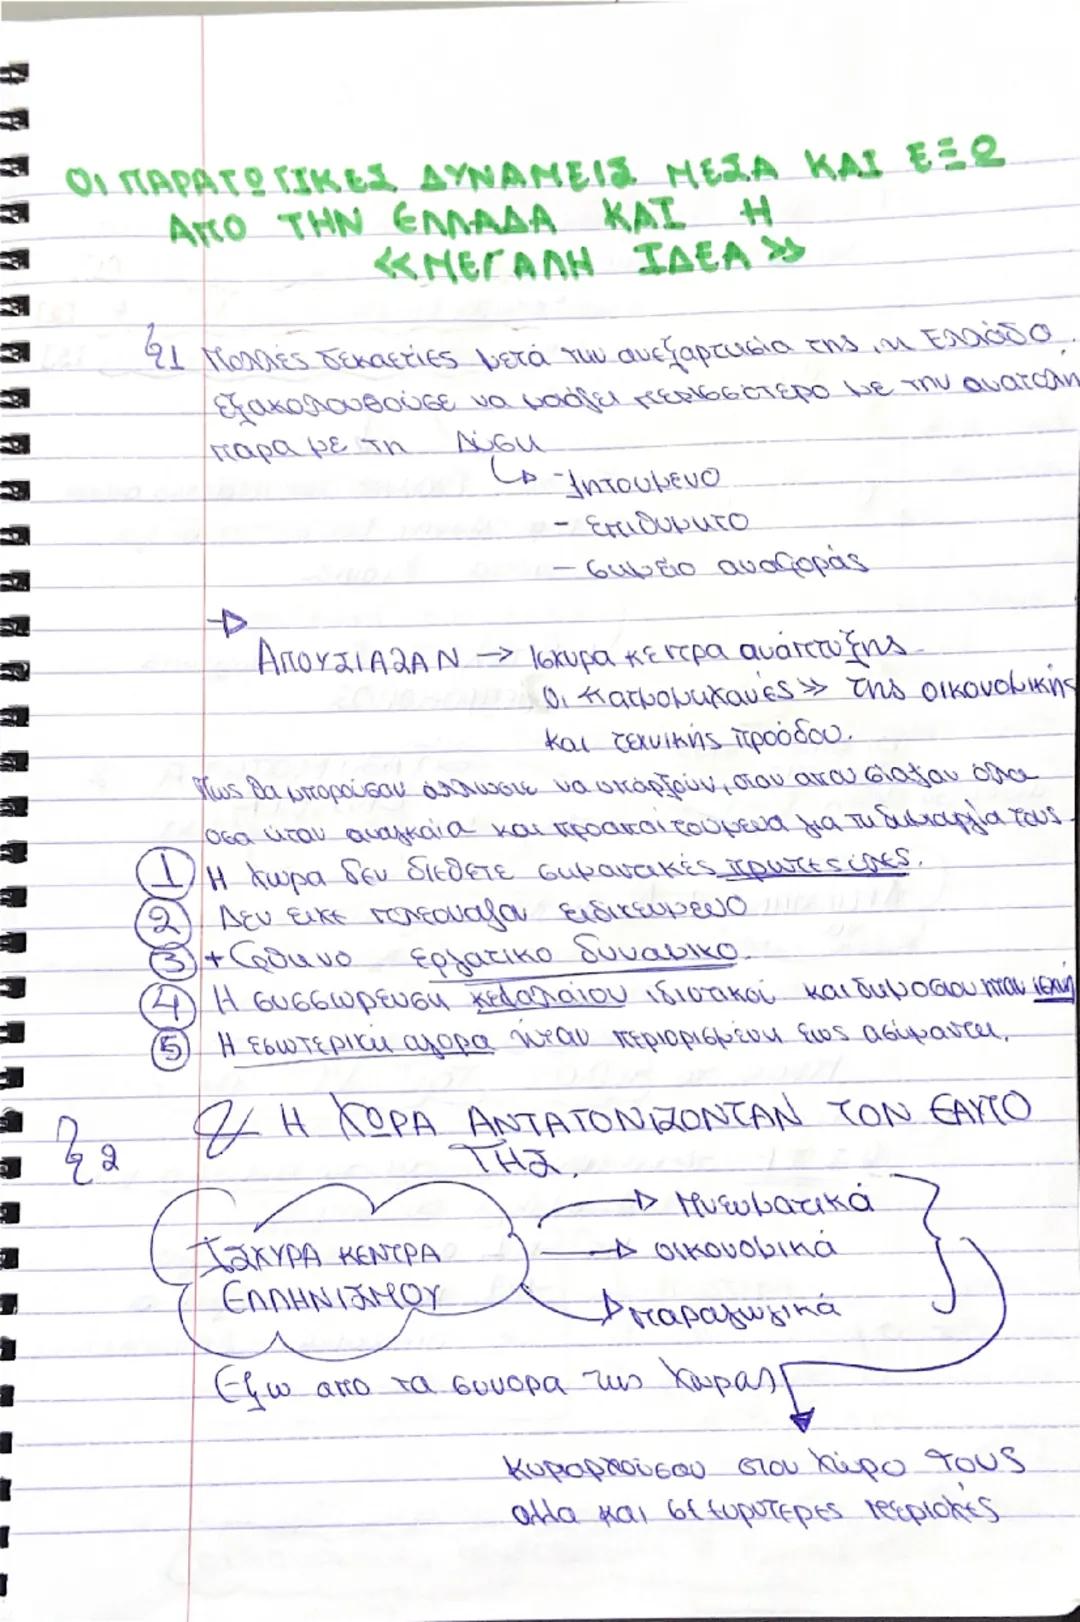 ΟΙ ΠΑΡΑΓΩΓΙΚΕΣ ΔΥΝΑΜΕΙΣ ΜΕΣΑ ΚΑΙ ΕΞΩ
ΑΠΟ ΤΗΝ ΕΛΛΑΔΑ ΚΑΙ Η
«ΜΕΓΑΛΗ ΙΔΕΑ»
§1 Πολλές δεκαετίες μετά την ανεξαρτησία της, η Ελλάδα
εξακολουθούσε να μοιάζει περισσότερο με την ανατολη
παρα με τη Δύση
↳ -ζητουμενο
- επιθυμητο
- σημείο αναφοράς
→
ΑΠΟΥΣΙΑΖΑΝ → ισχυρα κεντρα ανάπτυξης
Οι «ατμομηχανές» της οικονομικής
και τεχνικής προόδου.
Πως θα μπορούσαν άλλωστε να υπάρξουν, οταν απουσίαζαν όλα
οσα ήταν αναγκαία και προαπαιτούμενα για τη δημιουργία τους
① Η χωρα δεν διέθετε σημαντικές πρωτες ύλες.
② Δεν ειχε πλεοναζον ειδικευμενο
③ + φθηνο εργατικο δυναμικο.
④ Η συσσωρευση κεφαλαίου ιδιωτικού και δημοσιου ηταν ισχνή
⑤ Η εσωτερικη αγορα ήταν περιορισμένη έως ασήμαντη.
Η ΧΩΡΑ ΑΝΤΑΓΩΝΙΖΟΝΤΑΝ ΤΟΝ ΕΑΥΤΟ
§2 ΤΗΣ.
→ Πνευματικά
ΙΣΧΥΡΑ ΚΕΝΤΡΑ → οικονομικά
ΕΛΛΗΝΙΣΜΟΥ → παραγωγικά
Εξω απο τα συνορα της χωρας
κυριαρχούσαν στον χώρο τους
αλλα και σε ευρυτερες περιοχές